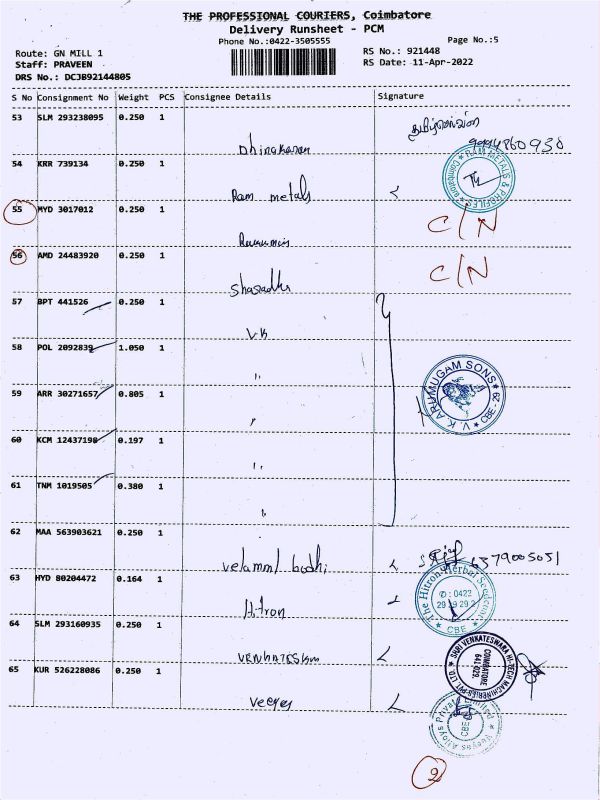 THE PROFESSIONAL COURIERS, Coimbatore
Delivery Runsheet - PCM
Phone No.:0422-3505555
Page No.:5
Route: GN MILL 1
RS No.: 921448
Staff: PRAVEEN
RS Date: 11-Apr-2022
DRS No.: DCJB92144805
S No Consignment No Weight PCS Consignee Details Signature
53 SLM 293238095 0.250 1
Dhinakaran
9994860930
54 KRR 739134 0.250 1
Ram metals
RAM METALS & PROFILES Coimbatore
55 MYD 3017012 0.250 1
C/N
56 AMD 24483920 0.250 1
C/N
57 BPT 441526 0.250 1
V.K
58 POL 2092839 1.050 1
"
V.K. ARUMUGAM SONS CBE - 29
59 ARR 30271657 0.805 1
"
60 KCM 12437198 0.197 1
"
61 TNM 1019505 0.380 1
"
62 MAA 563903621 0.250 1
velamml bodhi
6379005051
63 HYD 80204472 0.164 1
Hitron
The Hitron Herbal
CBE
64 SLM 293160935 0.250 1
SHRI VENKATESWARA HI-TECH MACHINERIES PVT. LTD.
COIMBATORE
641 029.
65 KUR 526228086 0.250 1
Veeyes
Veeyes Alloys Private Limited
CBE
2